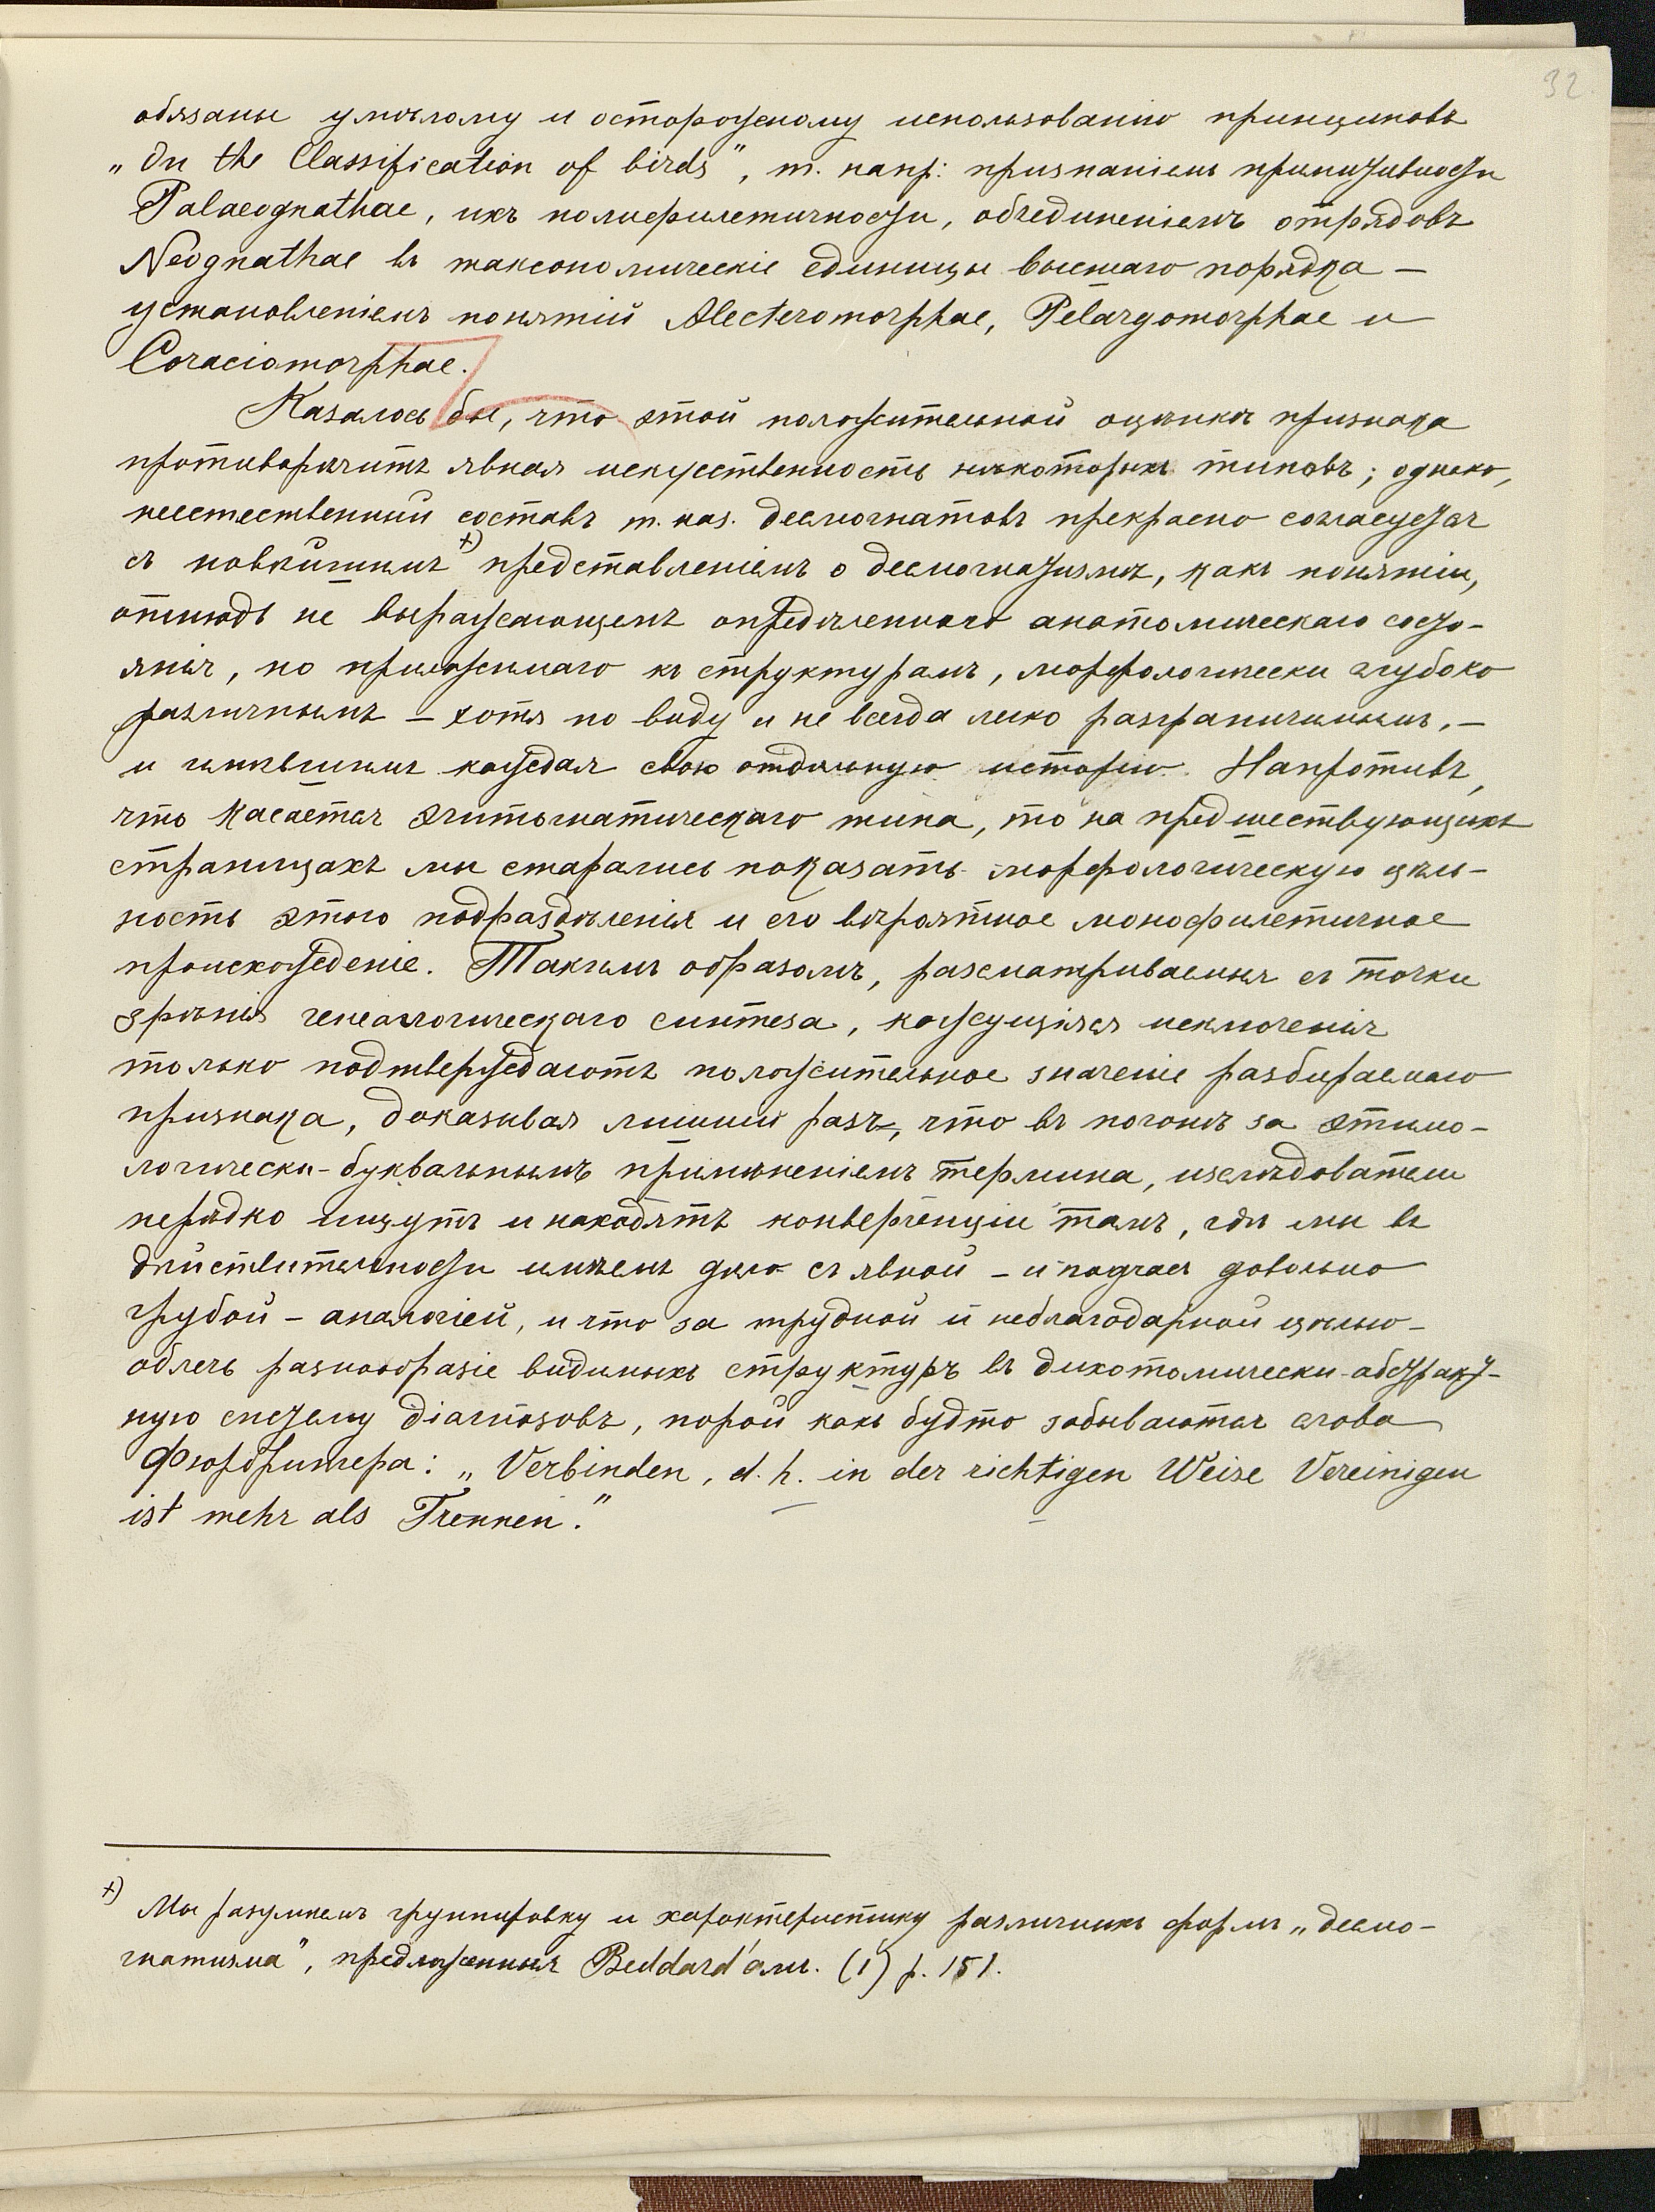 32
обязаны умѣлому и осторожному использованію принциповъ
„On the Classification of birds”, т. напр: признаніемъ примитивности
Palaeognathae, ихъ полифилетичности, объединеніемъ отрядовъ
Neognathae въ таксономическіе единицы высшаго порядка —
установленіемъ понятій Alecteromorphae, Pelargomorphae и
Coraciomorphae.
Казалось бы, что этой положительной оцѣнкѣ признака
противорѣчитъ явная искусственность нѣкоторыхъ типовъ; однако,
неестественный составъ т. наз. десмогнатовъ прекрасно согласуется
съ новѣйшимъ +) представленіемъ о десмогнатизмѣ, какъ понятіи,
отнюдь не выражающемъ опредѣленнаго анатомическаго состо-
янія, но приложимаго къ структурамъ, морфологически глубоко
различнымъ — хотя по виду и не всегда легко разграничимымъ, —
и имѣвшимъ каждая свою отдѣльную исторію. Напротивъ,
что касается эгитогнатическаго типа, то на предшествующихъ
страницахъ мы старались показать морфологическую цѣль-
ность этого подраздѣленія и его вѣроятное монофилетичное
происхожденіе. Такимъ образомъ, разсматриваемыя съ точки
зрѣнія генеалогическаго синтеза, кажущіяся исключенія
только подтверждаютъ положительное значеніе разбираемаго
признака, доказывая лишній разъ, что въ погонѣ за этимо-
логически-буквальнымъ примѣненіемъ термина, изслѣдователи
нерѣдко ищутъ и находятъ конвергенціи тамъ, гдѣ мы въ
дѣйствительности имѣемъ дѣло съ явной — и подчасъ довольно
грубой — аналогіей, и что за трудной и неблагодарной цѣлью —
облечь разнообразіе видимыхъ структуръ въ дихотомически-абстракт-
ную систему діагнозовъ, порой какъ будто забываются слова
Фюрбрингера: „Verbinden, d. h. in der richtigen Weise Vereinigen
ist mehr als Trennen.”
+) Мы разумѣемъ группировку и характеристику различныхъ формъ „десмо-
гнатизма”, предложенныя Beddard'омъ. (1) p. 151.